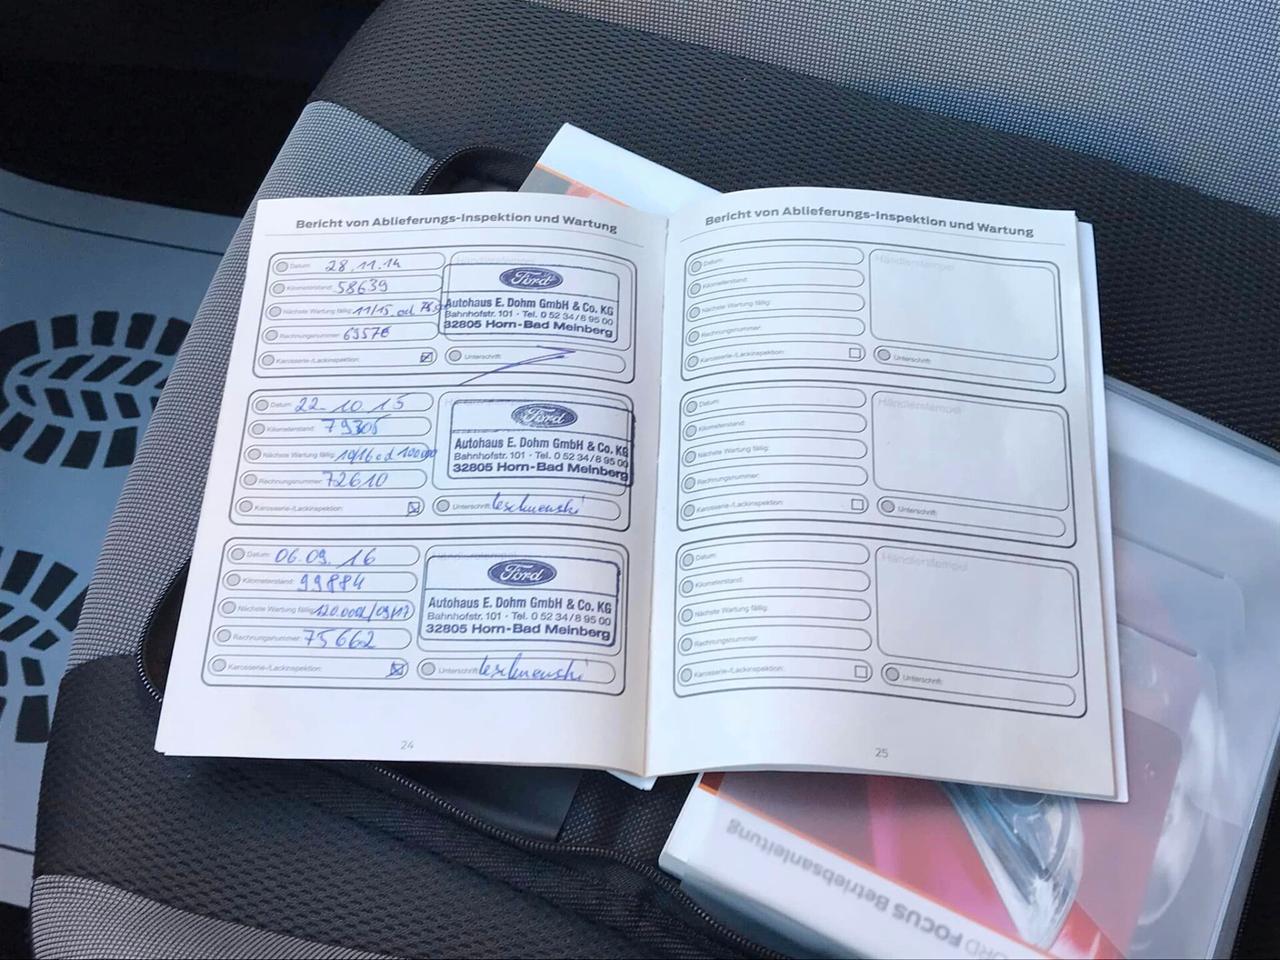 Bericht von Ablieferungs-Inspektion und Wartung
Datum: 28.11.14
Kilometerstand: 58639
Nächste Wartung fällig: 11/15 od
Rechnungsnummer: 63576
Karosserie-/Lackinspektion:
Händlerstempel
Ford
Autohaus E. Dohm GmbH & Co. KG
Bahnhofstr. 101 · Tel. 0 52 34/8 95 00
32805 Horn-Bad Meinberg
Unterschrift:
Datum: 22.10.15
Kilometerstand: 79305
Nächste Wartung fällig: 10/16 od 100000
Rechnungsnummer: 72610
Karosserie-/Lackinspektion:
Ford
Autohaus E. Dohm GmbH & Co. KG
Bahnhofstr. 101 · Tel. 0 52 34/8 95 00
32805 Horn-Bad Meinberg
Unterschrift:
Datum: 06.09.16
Kilometerstand: 99884
Nächste Wartung fällig: 120.000/09/17
Rechnungsnummer: 75662
Karosserie-/Lackinspektion:
Händlerstempel
Ford
Autohaus E. Dohm GmbH & Co. KG
Bahnhofstr. 101 · Tel. 0 52 34/8 95 00
32805 Horn-Bad Meinberg
Unterschrift:
24
Bericht von Ablieferungs-Inspektion und Wartung
Datum:
Kilometerstand:
Nächste Wartung fällig:
Rechnungsnummer:
Karosserie-/Lackinspektion:
Händlerstempel
Unterschrift:
Datum:
Kilometerstand:
Nächste Wartung fällig:
Rechnungsnummer:
Karosserie-/Lackinspektion:
Händlerstempel
Unterschrift:
Datum:
Kilometerstand:
Nächste Wartung fällig:
Rechnungsnummer:
Karosserie-/Lackinspektion:
Händlerstempel
Unterschrift:
25
ORD FOCUS Betriebsanleitung